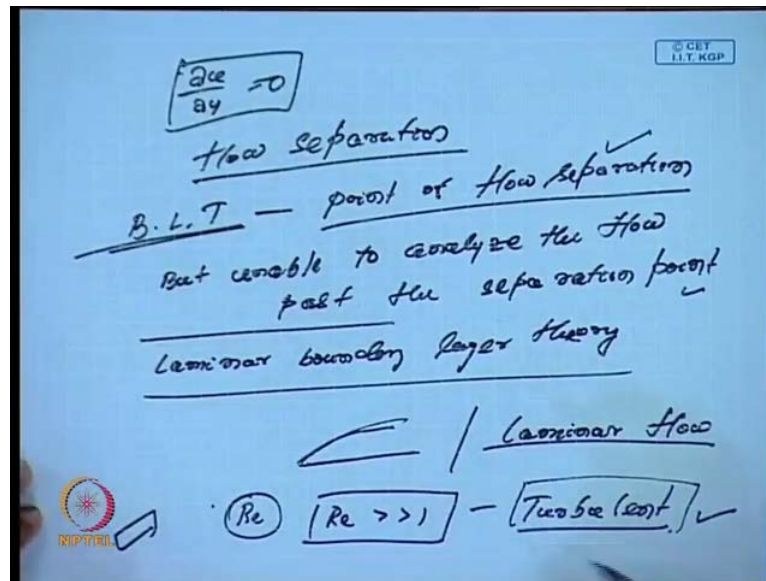 © CET
I.I.T. KGP
∂u/∂y = 0
flow separation
B.L.T — point of flow separation ✓
But unable to analyze the flow
past the separation point ✓
Laminar boundary layer theory
Laminar flow
Re Re >> 1 - Turbulent ✓
NPTEL